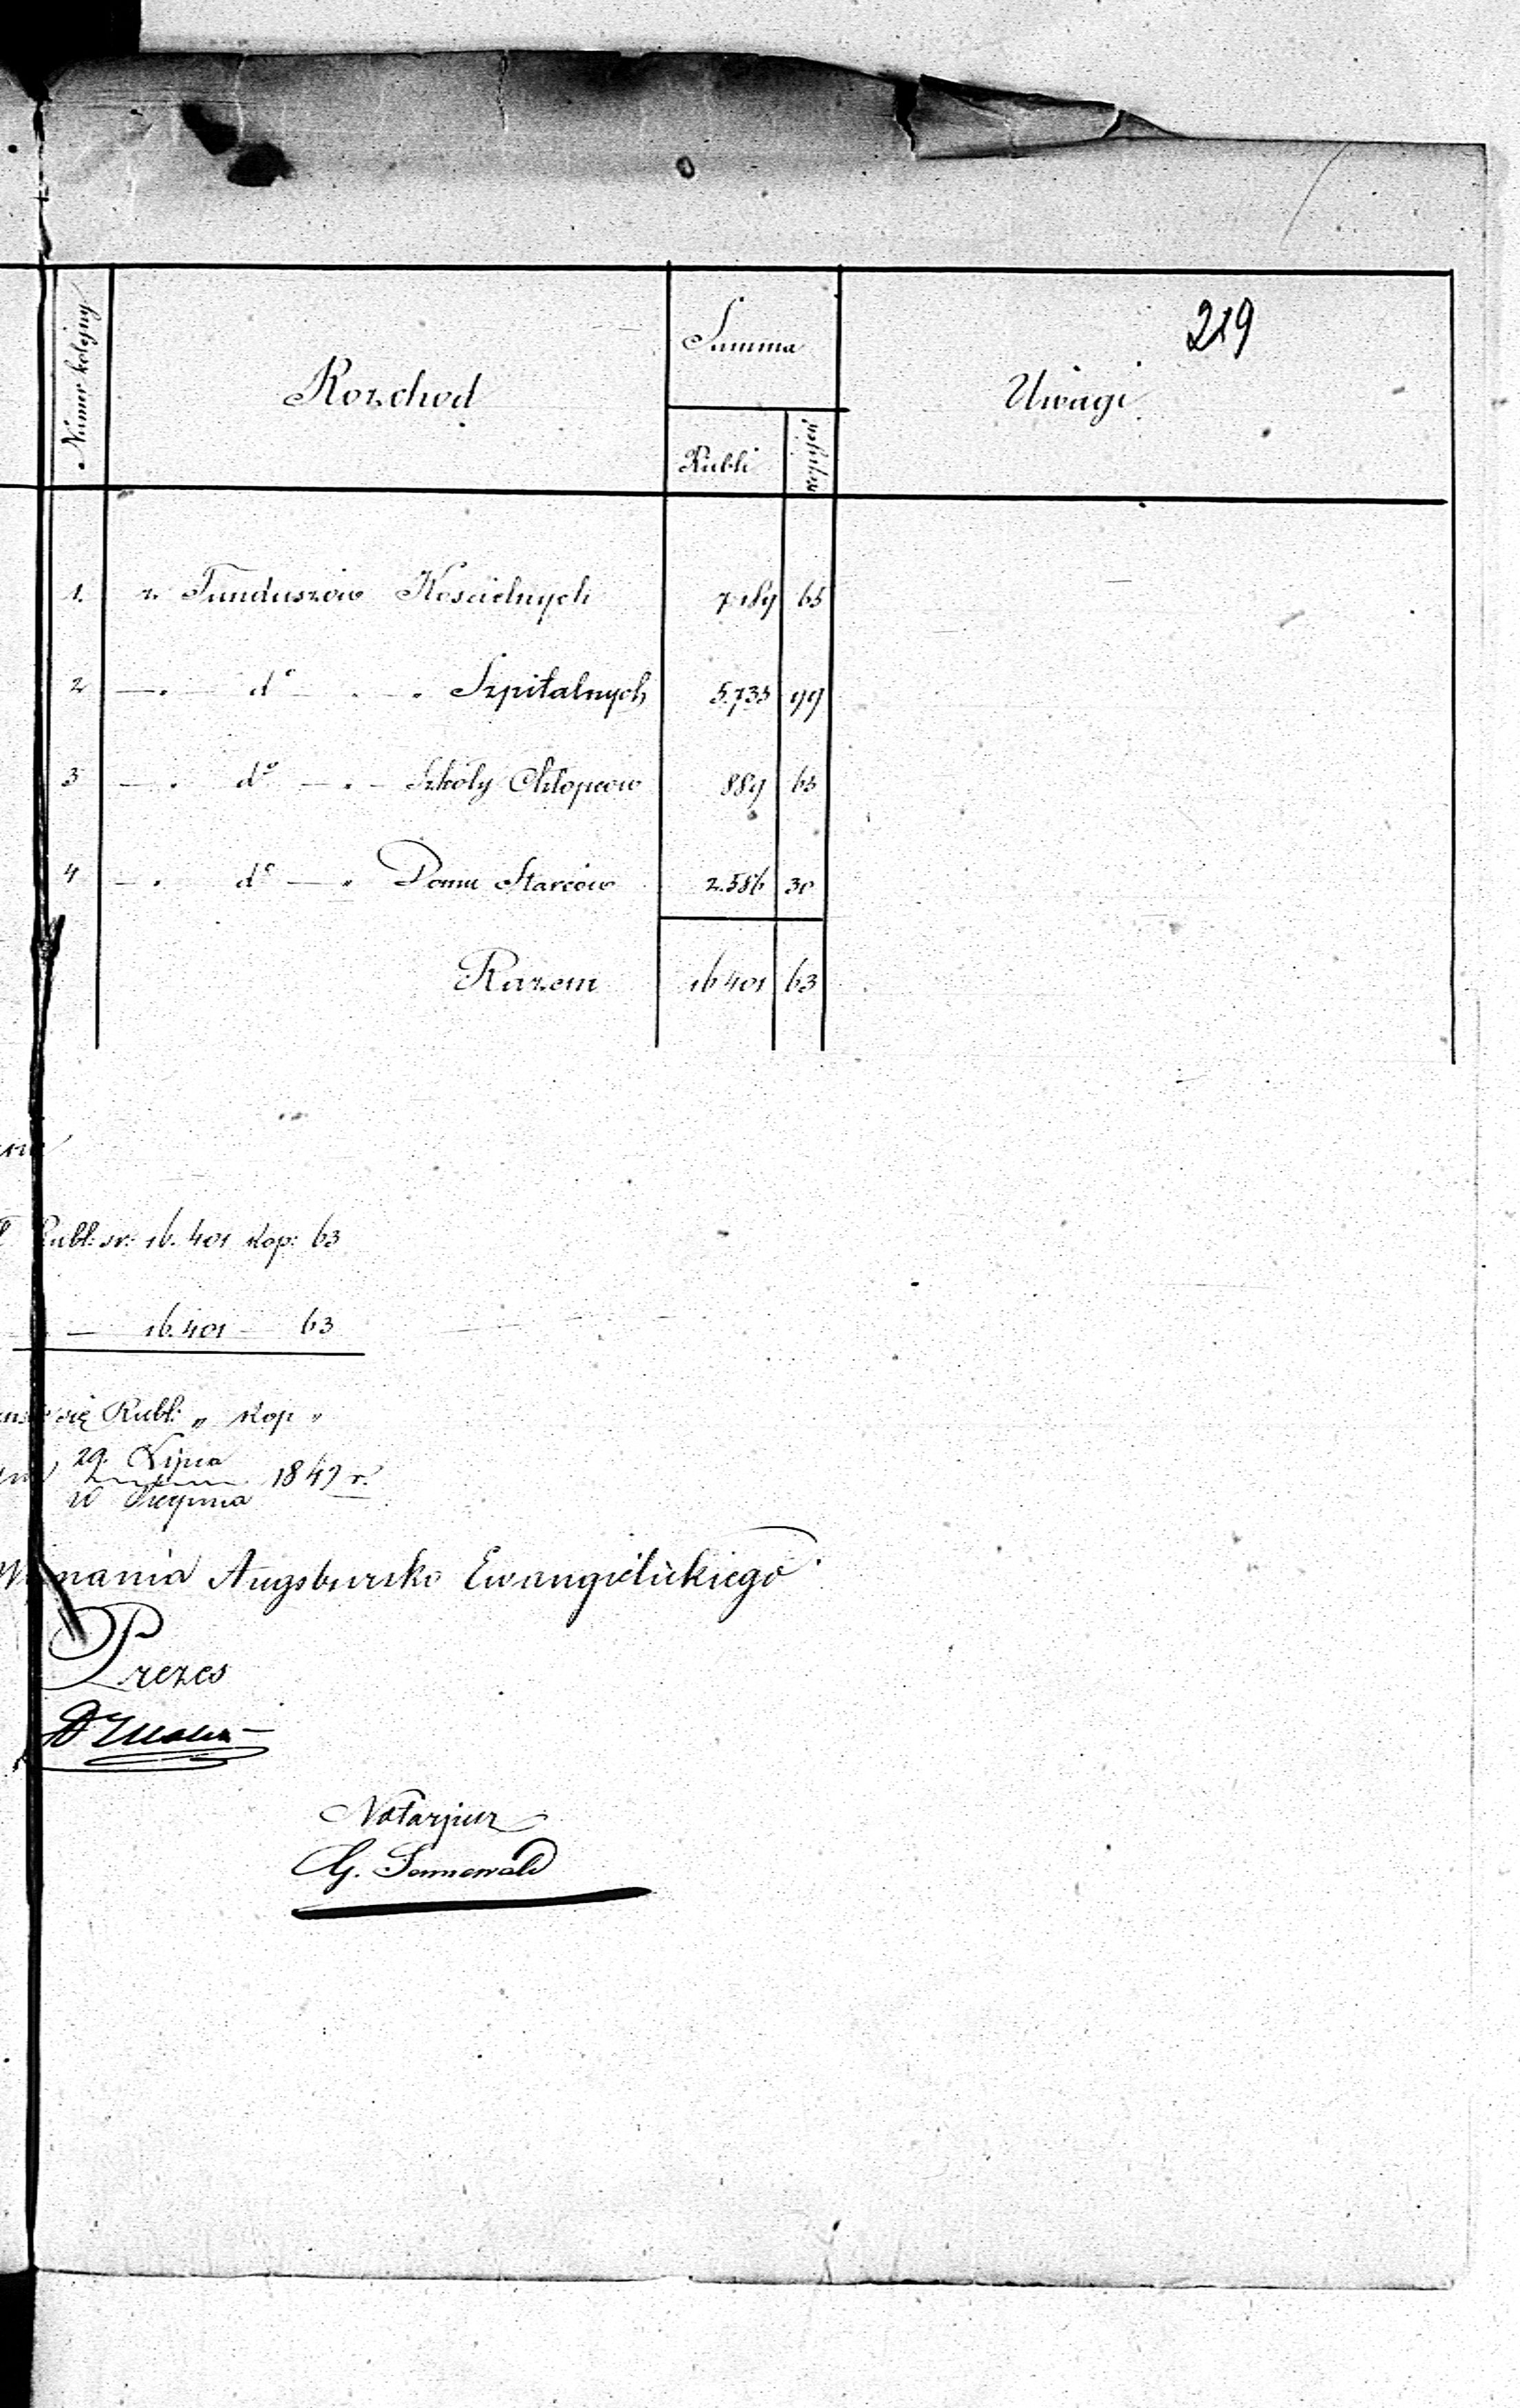 219
Numer kolejny
Rozchod
Summa
Rubli
kopijek
Uwagi
1. z Funduszów Kościelnych 7.189 65
2 — " d° — " Szpitalnych 5.735 99
3 — " d° — " — Szkoły Chłopców 889 65
4 — " d° — " Domu Starców 2.586 30
Razem 16 401 63
Rubl: sr: 16.401 kop: 63
— 16.401 — 63
się Rubl: " kop "
29 Lipca
10 Sierpnia 1849 r.
Wyznania Augsbursko Ewangielickiego
Prezes
Notarjusz
G. Sonnewald